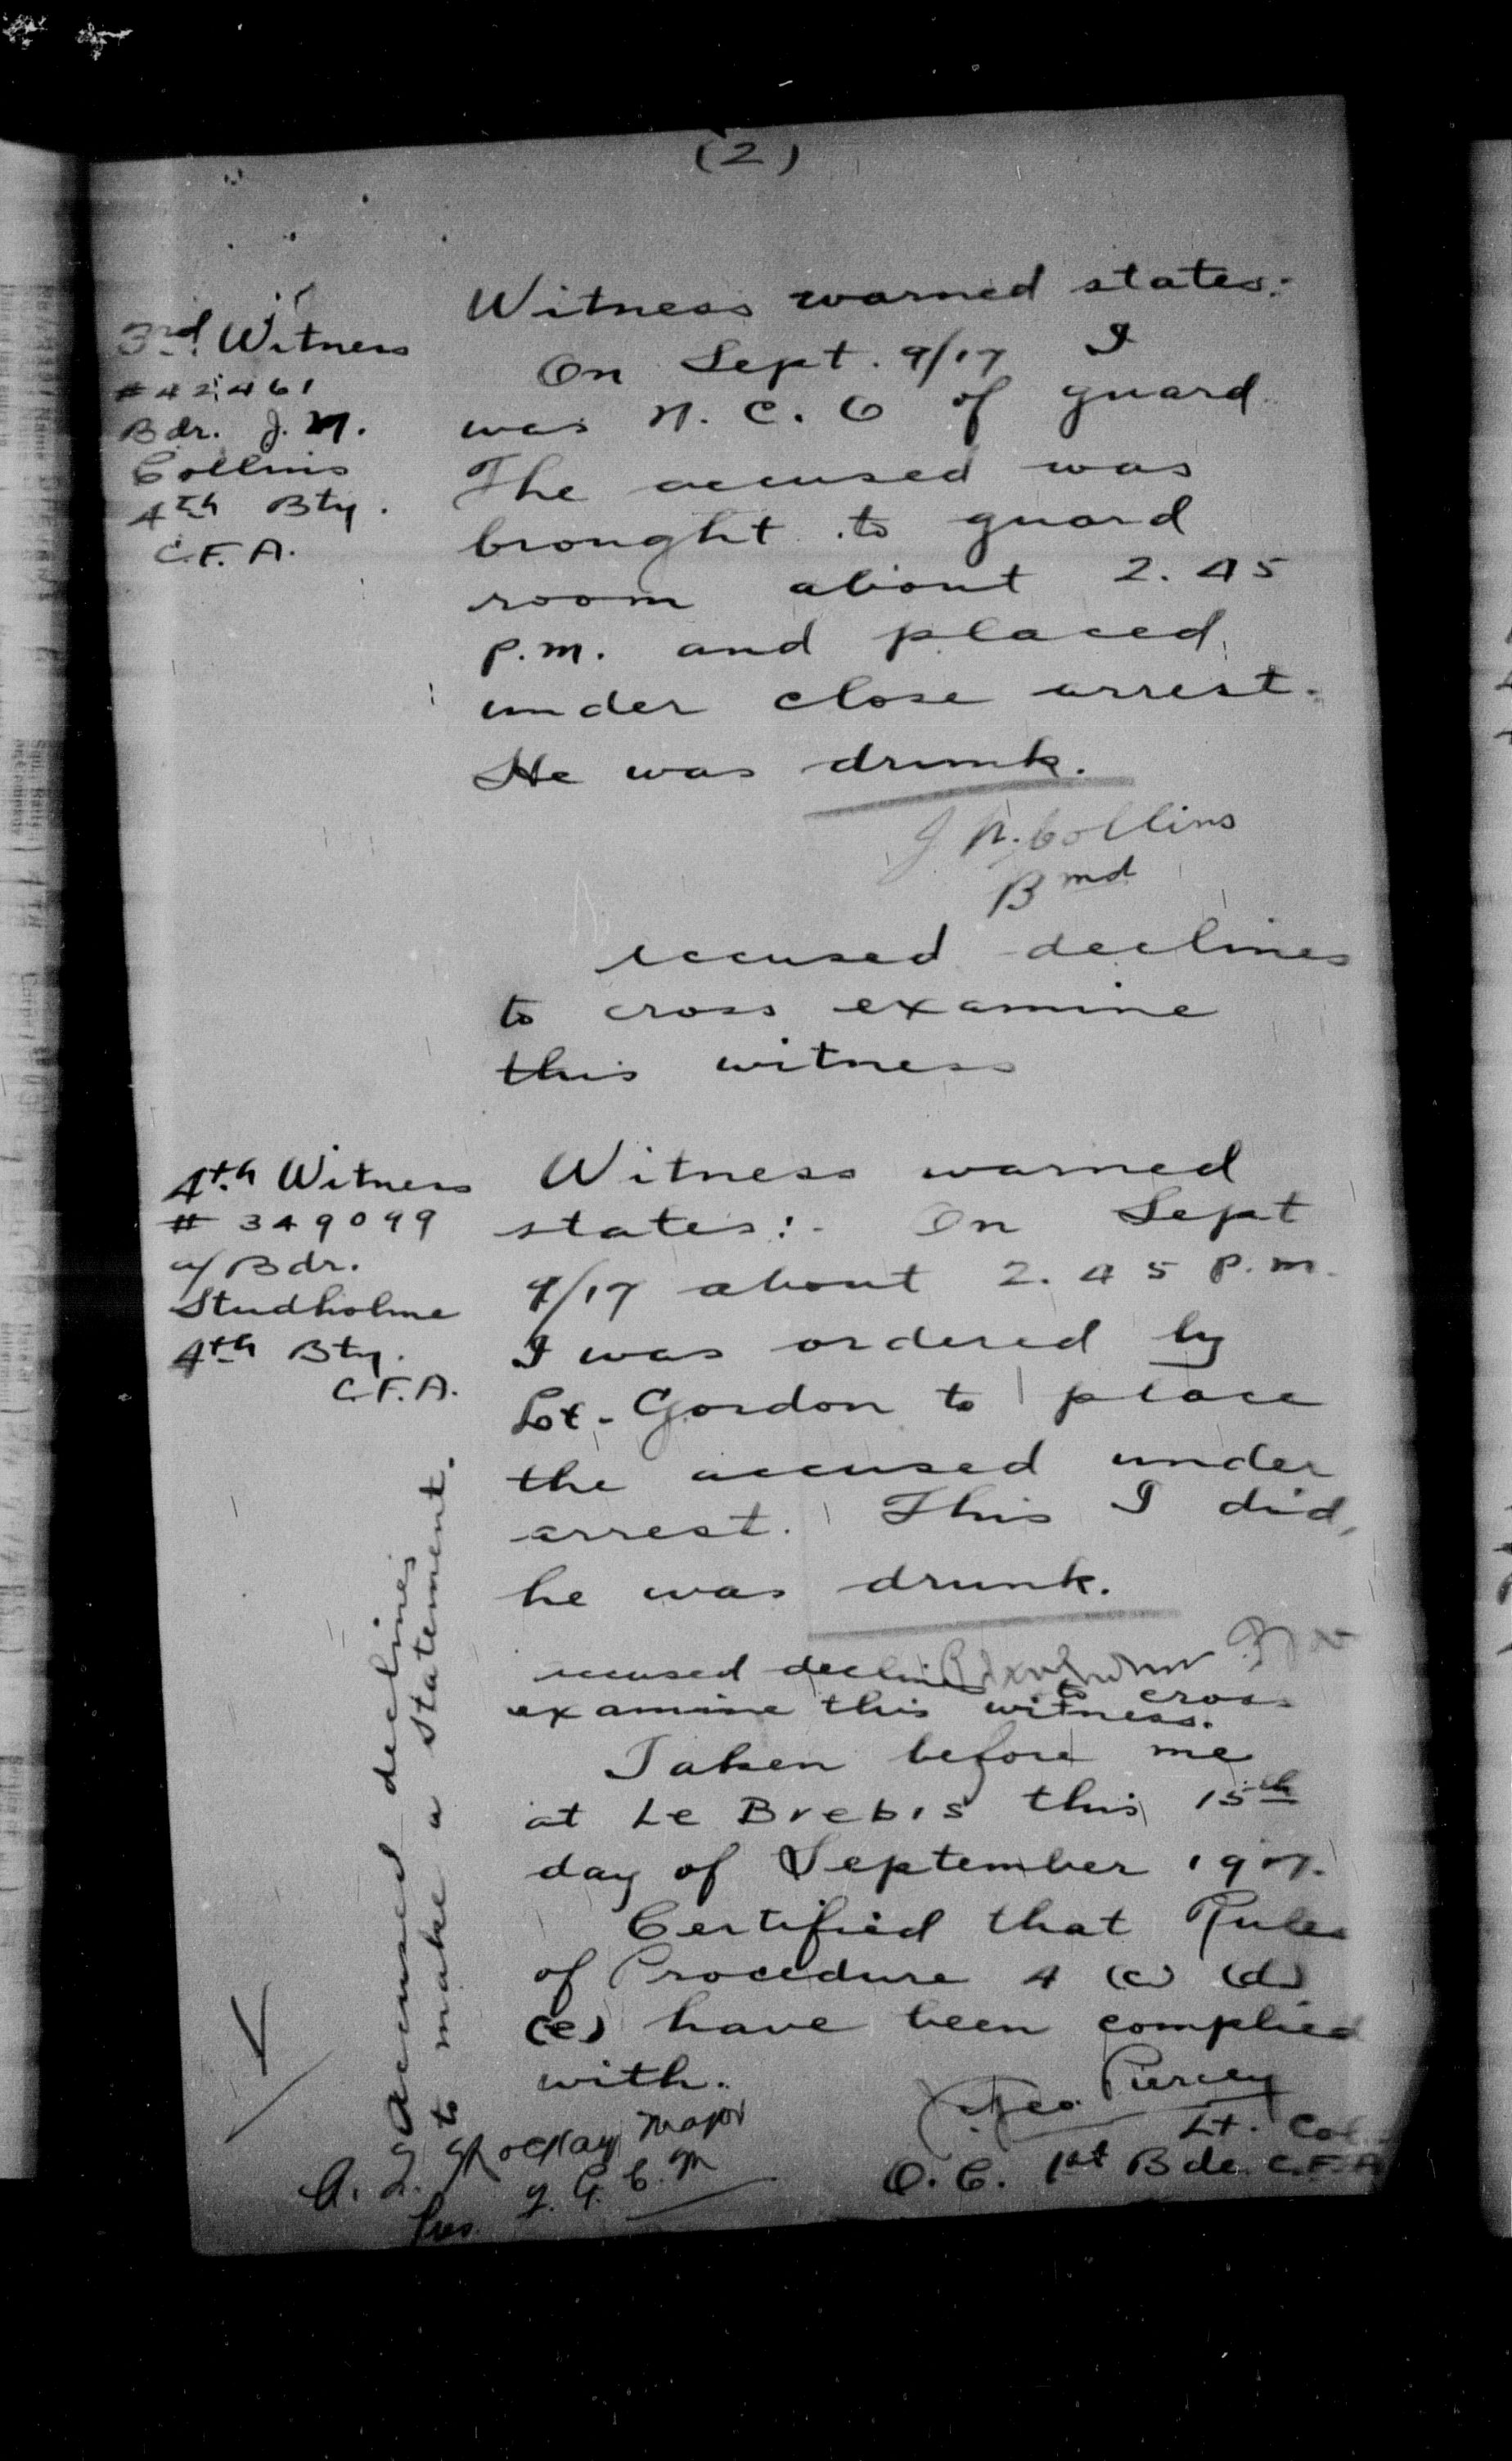 (2)
3rd Witness
#42461
Bdr. J. N.
Collins
4th Bty.
C.F.A.
Witness warned states:-
On Sept. 9/17 I
was N. C. O of guard.
The accused was
brought to guard
room about 2.45
p.m. and placed
under close arrest.
He was drunk.
J N. Collins
Bmd
accused declines
to cross examine
this witness
4th Witness
# 349099
a/Bdr.
Studholme
4th Bty.
C.F.A.
Witness warned
states:- On Sept
9/17 about 2.45 p.m.
I was ordered by
Lt. Gordon to place
the accused under
arrest. This I did,
he was drunk.
accused declines to cross
examine this witness.
Taken before me
at Le Brebis this 15th
day of September 1917.
Certified that Rules
of Procedure 4 (c) (d)
(e) have been complied
with.
Piercey
Lt. Col.
O.C. 1st Bde. C.F.A
Accused declines
to make a statement.
A. L. Major
Pres. F. G. C. M